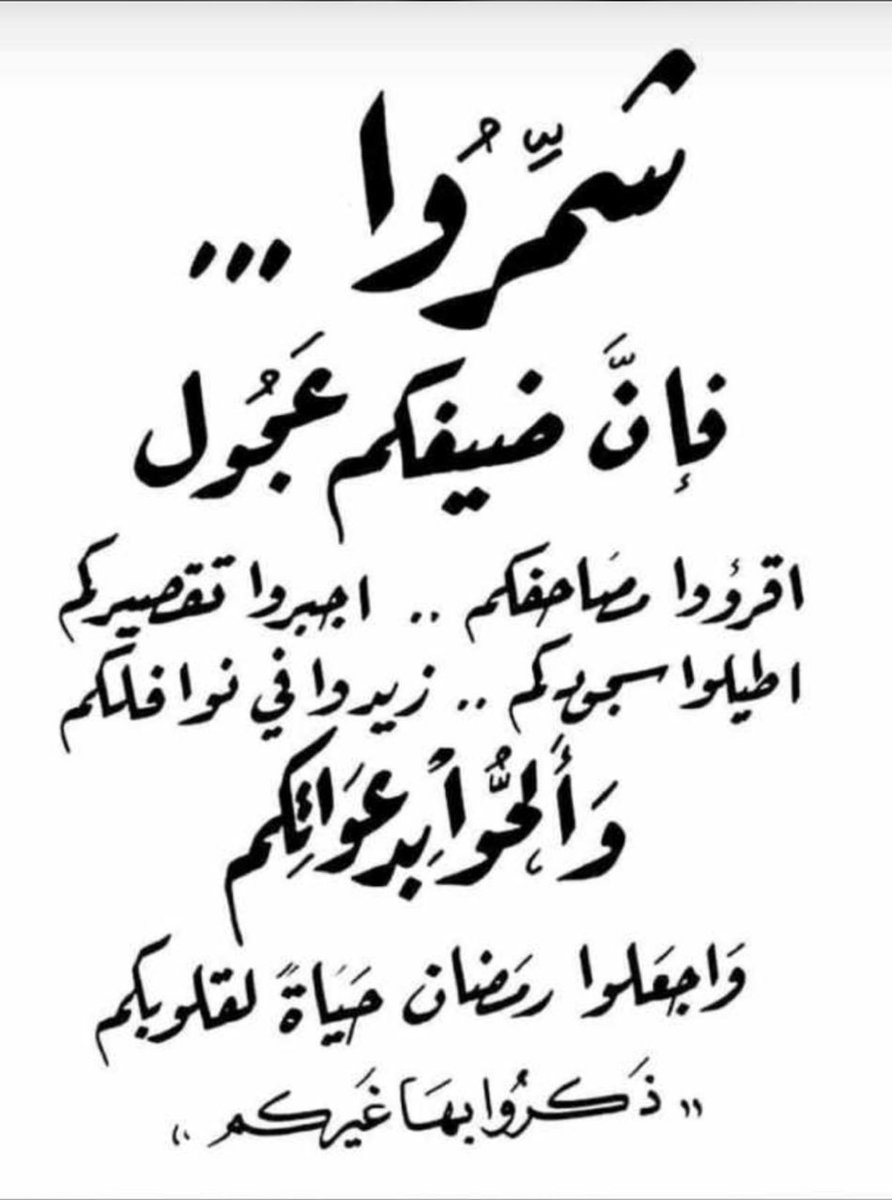 شمِّرُوا ...
فإنَّ ضيفكم عَجُول
اقرؤوا مصَاحفكم .. اجبروا تقصيركم
اطيلوا سجودكم .. زيدوا في نوافلكم
وَأَلِحُّوا بِدعوَاتِكم
وَاجعَلوا رمَضان حَيَاةً لقلوبكم
" ذَكرُوا بهَا غَيركم "